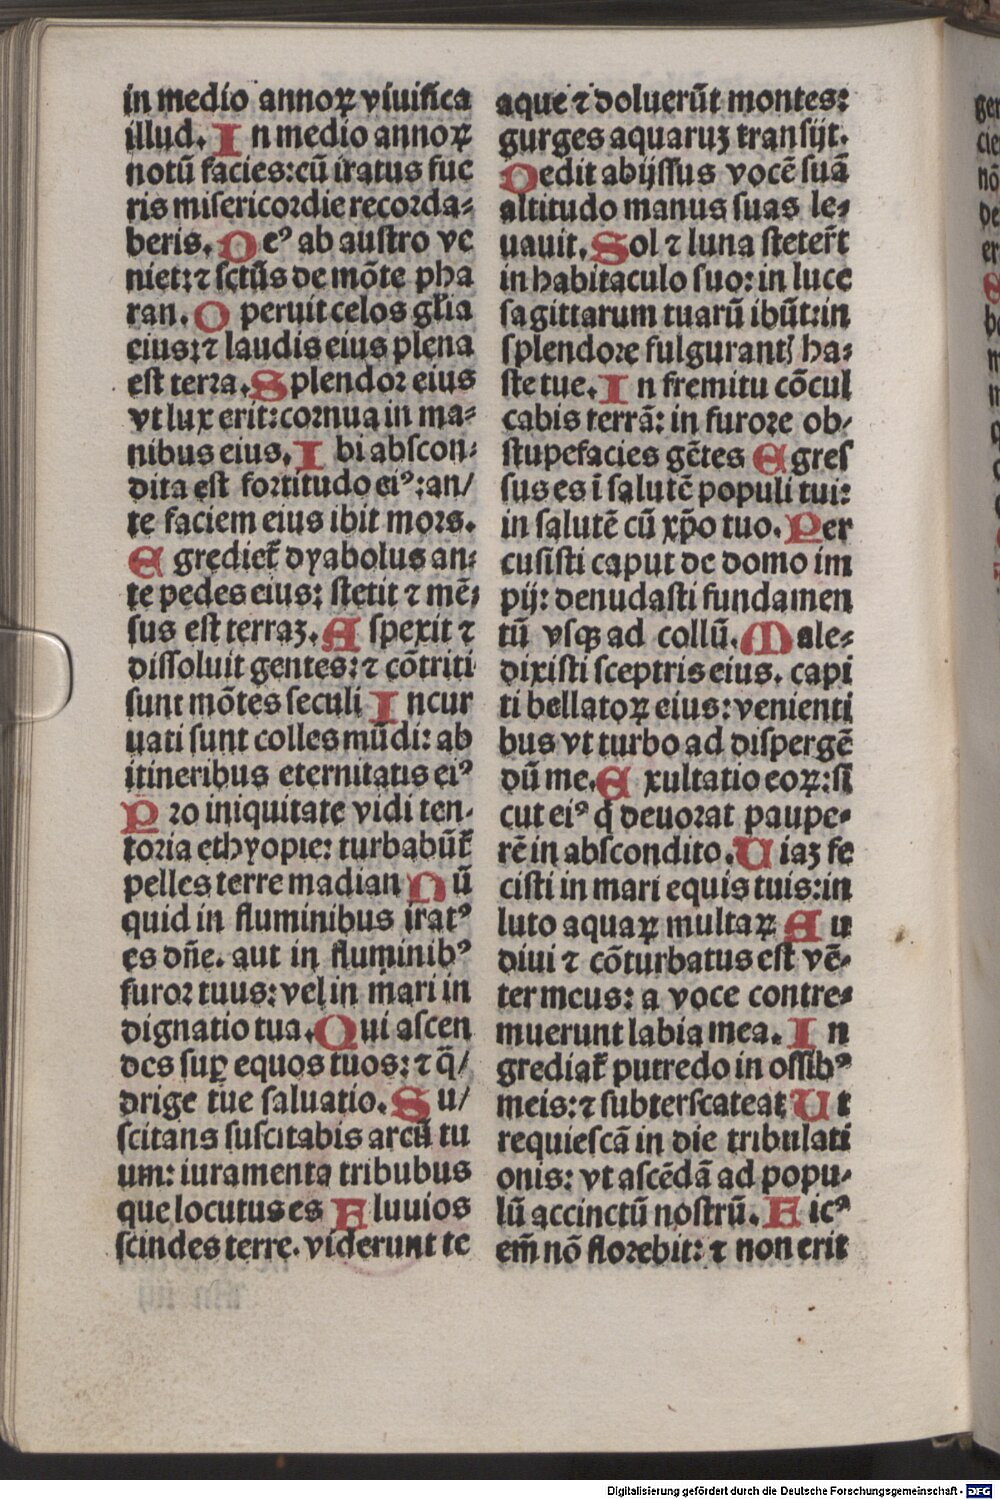 in medio annoꝝ viuifica
illud. In medio annoꝝ
notū facies: cū iratus fue
ris misericordie recorda⸗
beris. Deꝰ ab austro ve
niet: ⁊ sctūs de mōte pha
ran. Operuit celos gľia
eius: ⁊ laudis eius plena
est terra. Splendor eius
vt lux erit: cornua in ma⸗
nibus eius. Ibi abscon⸗
dita est fortitudo eiꝰ: an/
te faciem eius ibit mors.
Egrediet̃ dyabolus an⸗
te pedes eius: stetit ⁊ mē⸗
sus est terraꝫ. Aspexit ⁊
dissoluit gentes: ⁊ cōtriti
sunt mōtes seculi Incur
uati sunt colles mūdi: ab
itineribus eternitatis eiꝰ
Pro iniquitate vidi ten⸗
toria ethyopie: turbabūt̃
pelles terre madian Nū
quid in fluminibus iratꝰ
es dñe. aut in fluminibꝰ
furor tuus: vel in mari in
dignatio tua. Qui ascen
des sup̱ equos tuos: ⁊ q̄/
drige tue saluatio. Su/
scitans suscitabis arcū tu
um: iuramenta tribubus
que locutus es Fluuios
scindes terre. viderunt te
aque ⁊ doluerūt montes:
gurges aquaruꝫ transijt.
Dedit abijssus vocē suā
altitudo manus suas le⸗
uauit. Sol ⁊ luna steter̃t
in habitaculo suo: in luce
sagittarum tuarū ibūt: in
splendore fulgurantꝭ ha⸗
ste tue. In fremitu cōcul
cabis terrā: in furore ob/
stupefacies gētes Egres
sus es ī salutē populi tui:
in salutē cū xp̄o tuo. Per
cusisti caput de domo im
pij: denudasti fundamen
tū vsqꝫ ad collū. Male⸗
dixisti sceptris eius. capi
ti bellatoꝝ eius: venienti
bus vt turbo ad dispergē
dū me. Exultatio eoꝝ: si
cut eiꝰ q̇ deuorat paupe⸗
rē in abscondito. Uiaꝫ fe
cisti in mari equis tuis: in
luto aquaꝝ multaꝝ Au
diui ⁊ cōturbatus est vē⸗
ter meus: a voce contre⸗
muerunt labia mea. In
grediat̃ putredo in ossibꝰ
meis: ⁊ subter scateat Ut
requiescā in die tribulati
onis: vt ascēdā ad popu⸗
lū accinctū nostrū. Ficꝰ
em̄ nō florebit: ⁊ non erit
Digitalisierung gefördert durch die Deutsche Forschungsgemeinschaft - DFG